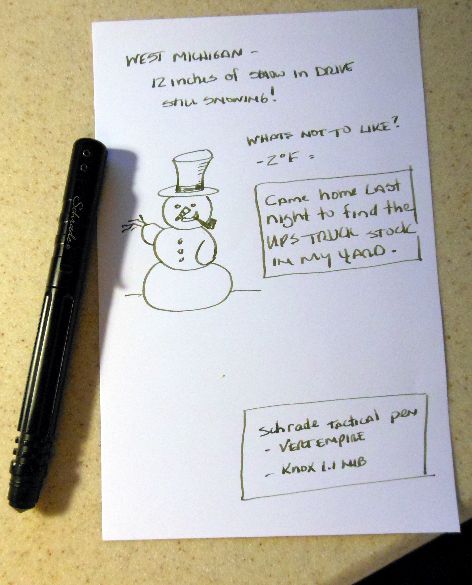 WEST MICHIGAN -
12 inches of snow in DRIVE
STILL SNOWING!
WHATS NOT TO LIKE?
-2°F =
Came home last
night to find the
UPS TRUCK STUCK
IN MY YARD.
Schrade Tactical pen
- VERT EMPIRE
- KNOX 1.1 NIB
Schrade